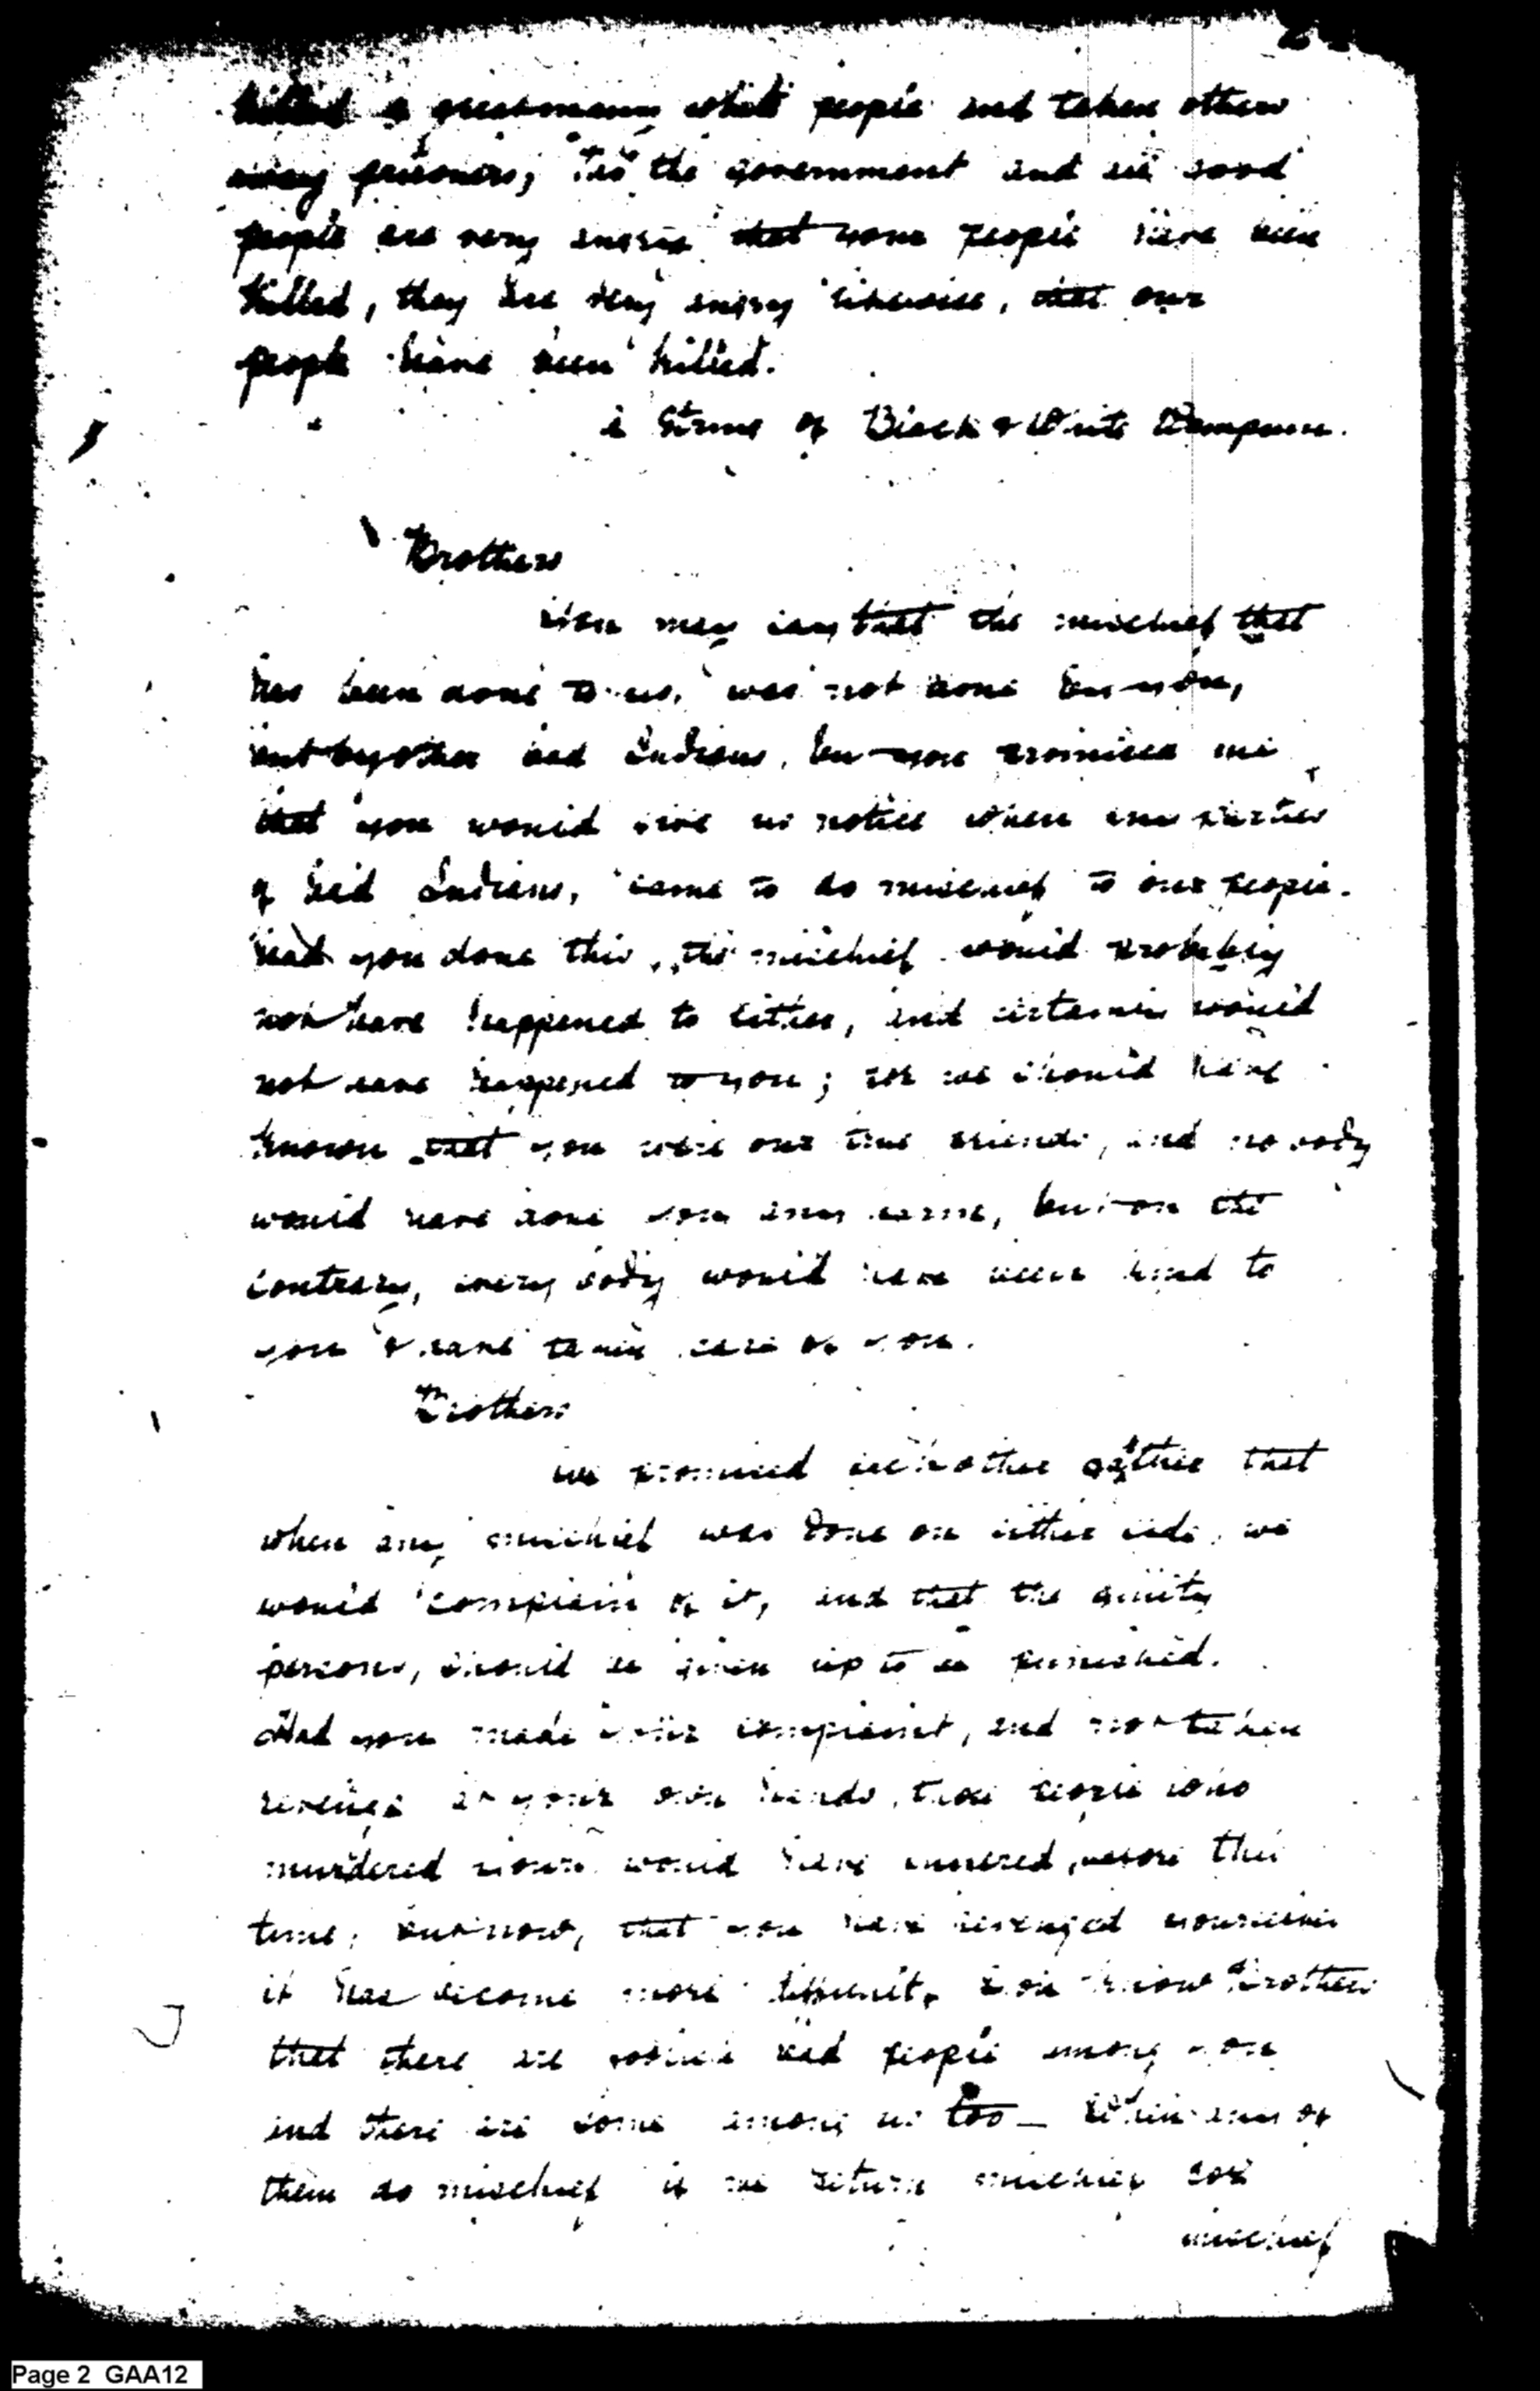 killed a great many white people and taken others
away prisoners; As the government and all good
people are very angry that your people have been
killed, they are very angry likewise, that our
people have been killed.
a String of Black & White Wampum.
Brothers
You may say that the mischief that
has been done to us, was not done by you,
but by other bad Indians, but you promised us
that you would give us notice when any parties
of bad Indians, came to do mischief to our people.
had you done this, the mischief would probably
not have happened to either, and certainly would
not have happened to you; for we should have
known that you were our true friends, and no body
would have done you any harm, but on the
contrary, every body would have been kind to
you & have taken care of you.
Brothers
we promised each other that
when any mischief was done on either side, we
would complain of it, and that the guilty
persons, should be given up to be punished.
Had you made your complaint, and not taken
revenge in your own hands, those people who
murdered yours would have suffered, before this
time; but now, that you have revenged yourselves
it has become more difficult. You know Brothers
that there are foolish bad people among you
and there are some among us too — When any of
them do mischief if we return mischief for
mischief
Page 2 GAA12